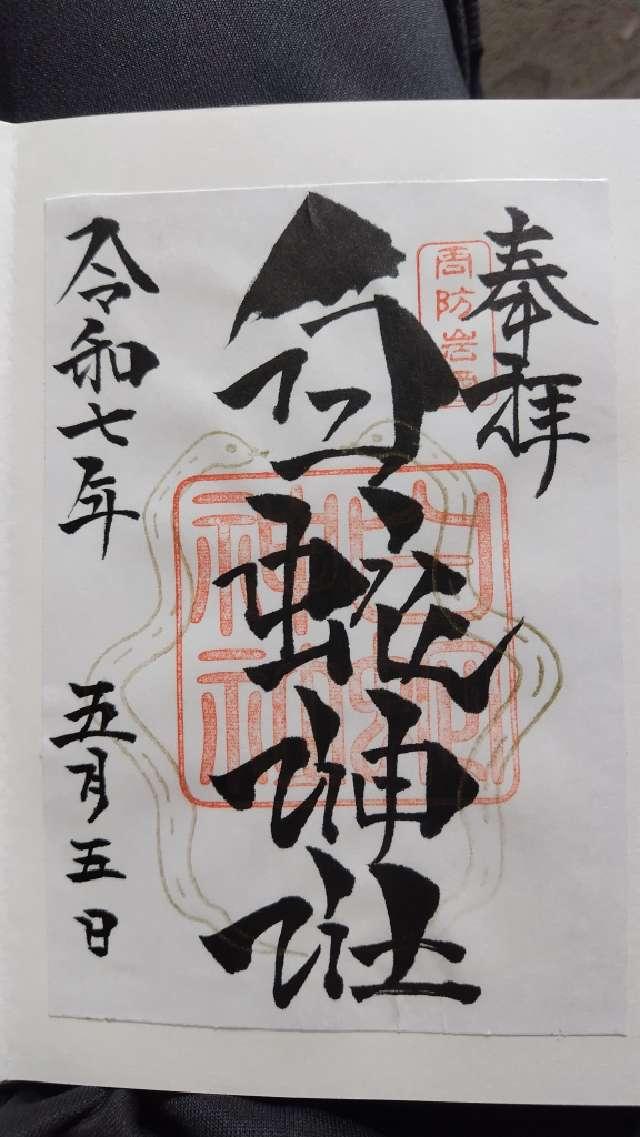 奉拝
周防岩国
白蛇神社
白蛇神社
令和七年
五月五日